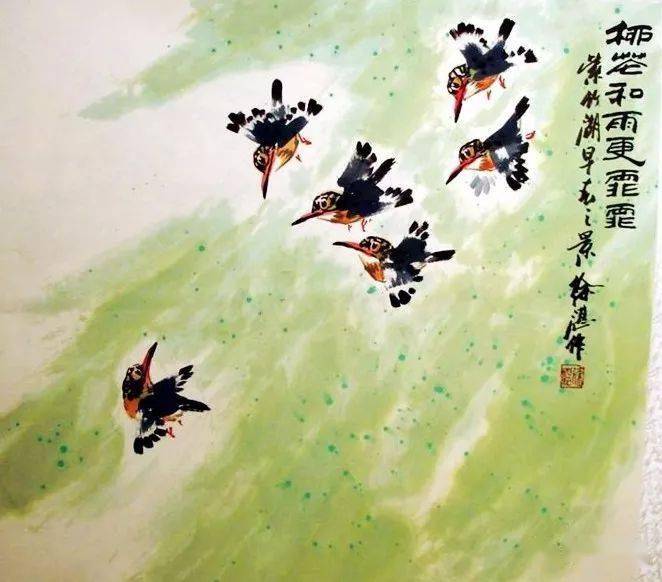 柳花和雨更霏霏
紫竹湖早春之景 徐湛作